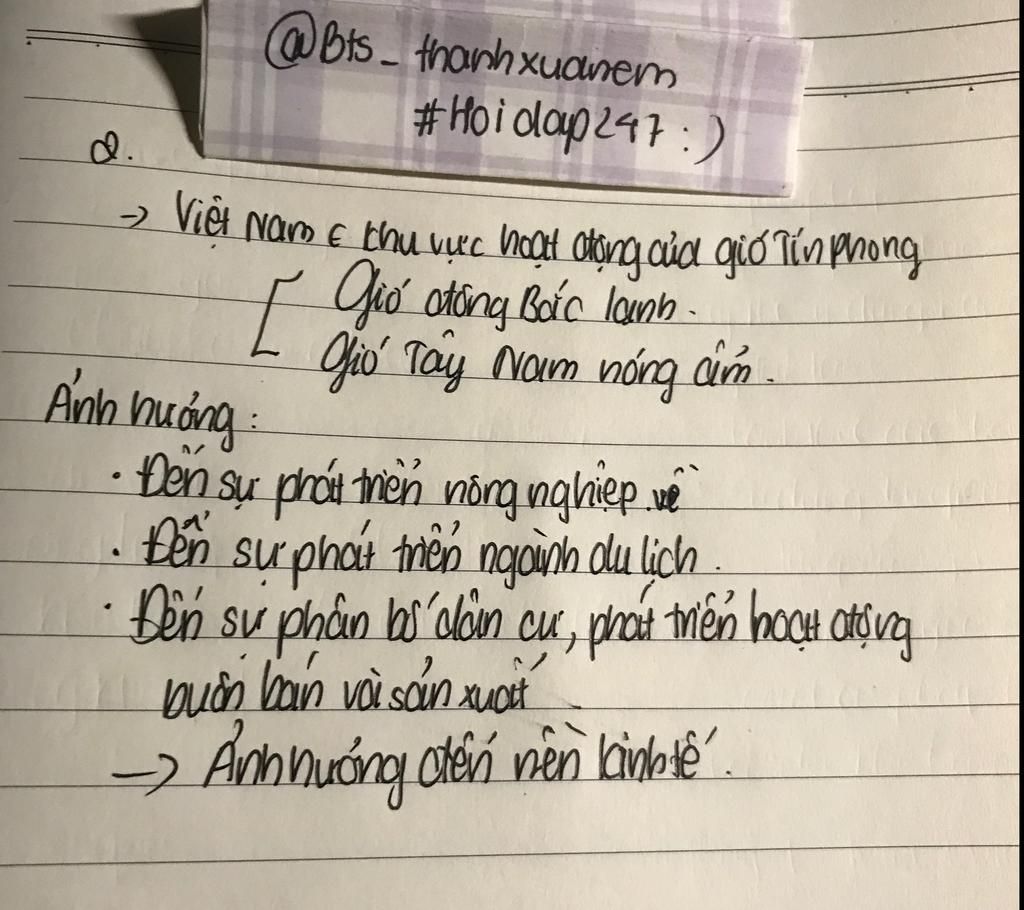 @Bts_thanhxuanem
#Hoidap247:)
2.
→ Việt Nam ∈ khu vực hoạt động của gió Tín phong
Gió đông Bắc lạnh.
Gió Tây Nam nóng ẩm.
Ảnh hưởng:
· Đến sự phát triển nông nghiệp về
· Đến sự phát triển ngành du lịch.
· Đến sự phân bố dân cư, phát triển hoạt động
buôn bán và sản xuất
→ Ảnh hưởng đến nền kinh tế.